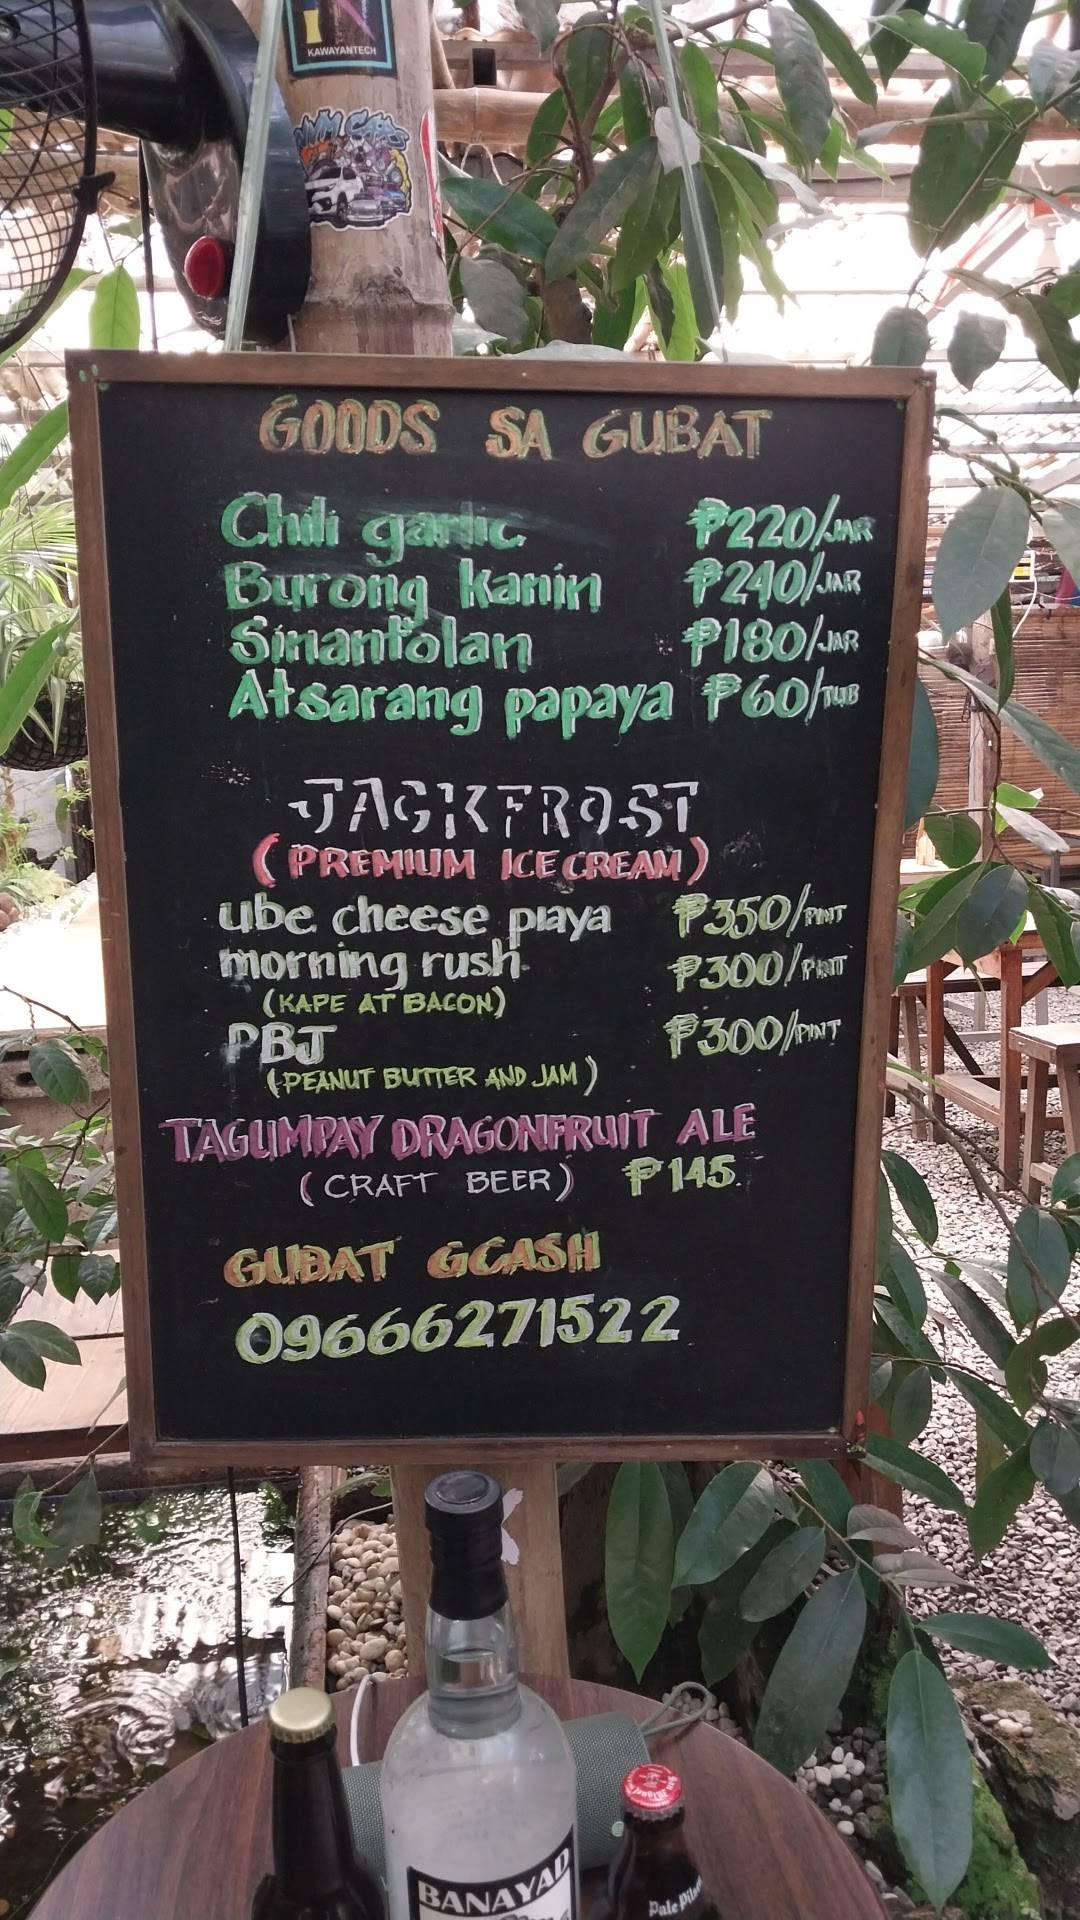 KAWAYANTECH
NVM CARS
GOODS SA GUBAT
Chili garlic ₱220/JAR
Burong kanin ₱240/JAR
Sinantolan ₱180/JAR
Atsarang papaya ₱60/TUB
JACK FROST
(PREMIUM ICE CREAM)
ube cheese playa ₱350/PINT
morning rush ₱300/PINT
(KAPE AT BACON)
PBJ ₱300/PINT
(PEANUT BUTTER AND JAM)
TAGUMPAY DRAGONFRUIT ALE
(CRAFT BEER) ₱145
GUBAT GCASH
09666271522
BANAYAD
San Miguel
Pale Pilsen